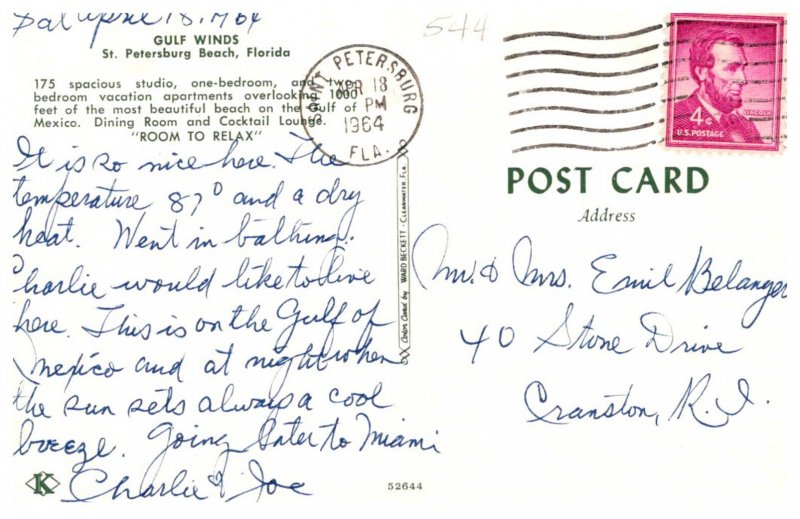 Sat April 18, 1964
GULF WINDS
St. Petersburg Beach, Florida
175 spacious studio, one-bedroom, and two-
bedroom vacation apartments overlooking 1000
feet of the most beautiful beach on the Gulf of
Mexico. Dining Room and Cocktail Lounge.
"ROOM TO RELAX"
It is so nice here. The
temperature 87° and a dry
heat. Went in bathing.
Charlie would like to live
here. This is on the Gulf of
Mexico and at night when
the sun sets always a cool
breeze. Going later to Miami
Charlie & Joe
K
52644
Color Card by WARD BECKETT - CLEARWATER FLA.
544
SAINT PETERSBURG
APR 18
PM
1964
FLA.
LINCOLN
4¢
U.S. POSTAGE
POST CARD
Address
Mr. & Mrs. Emil Belanger
40 Stone Drive
Cranston, R.I.